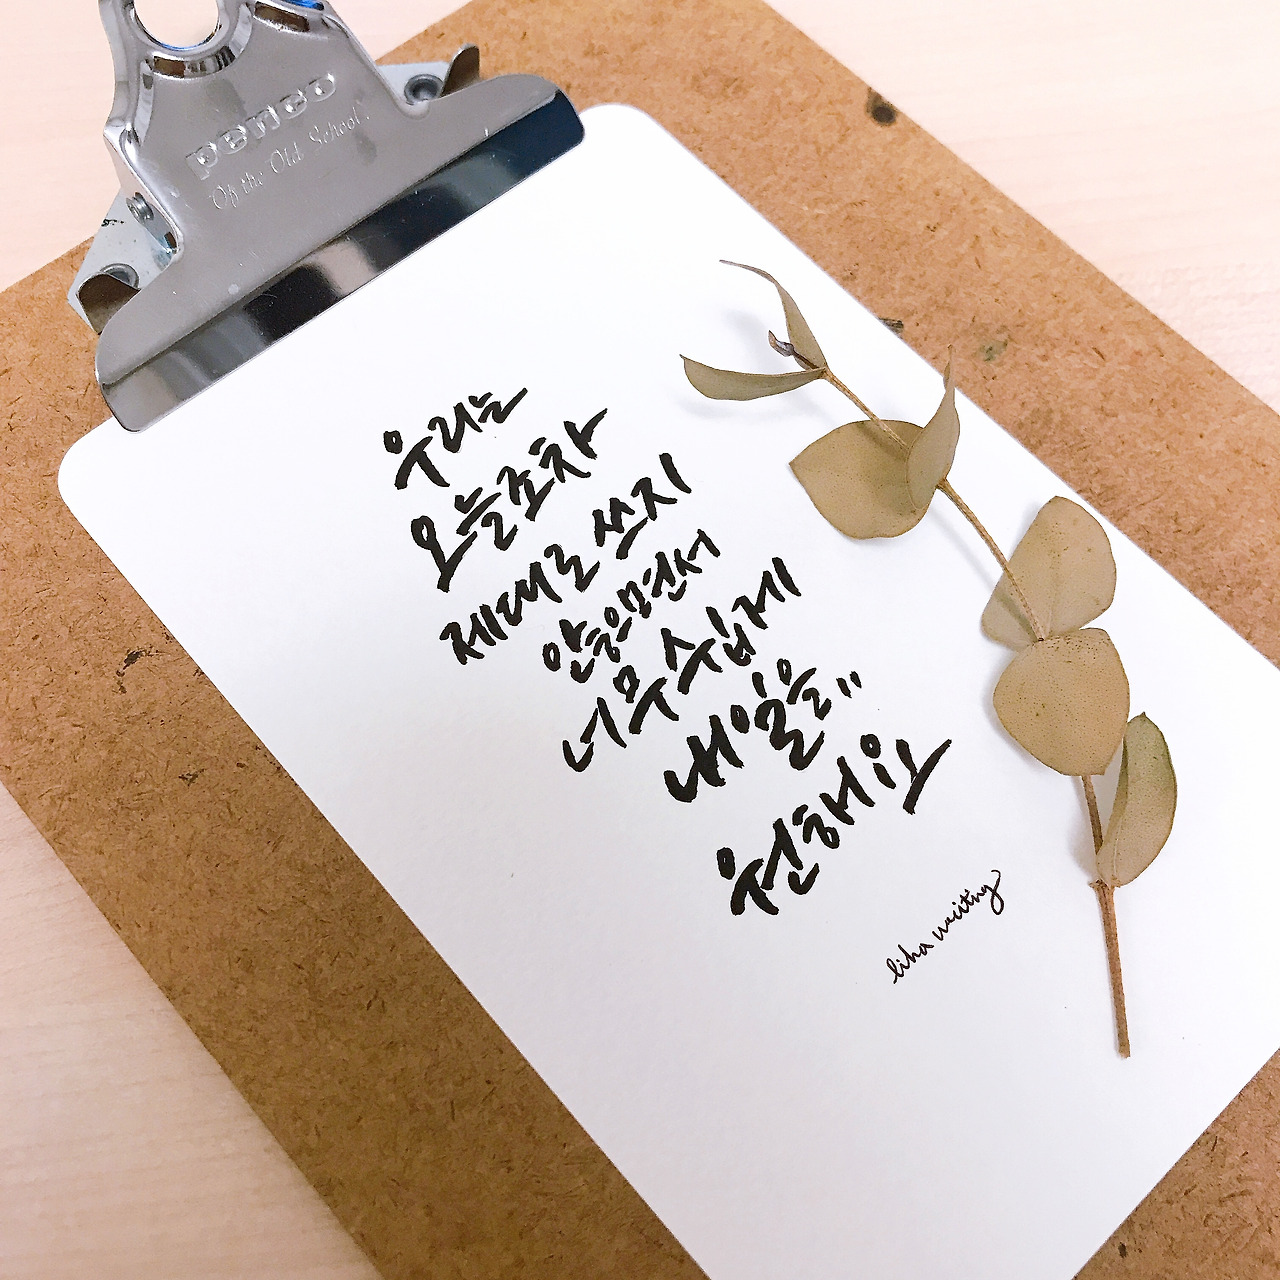 penco
Of the Old School.
우리는
오늘조차
제대로 쓰지
않으면서
너무 쉽게
내일을"
원해요
liha writing